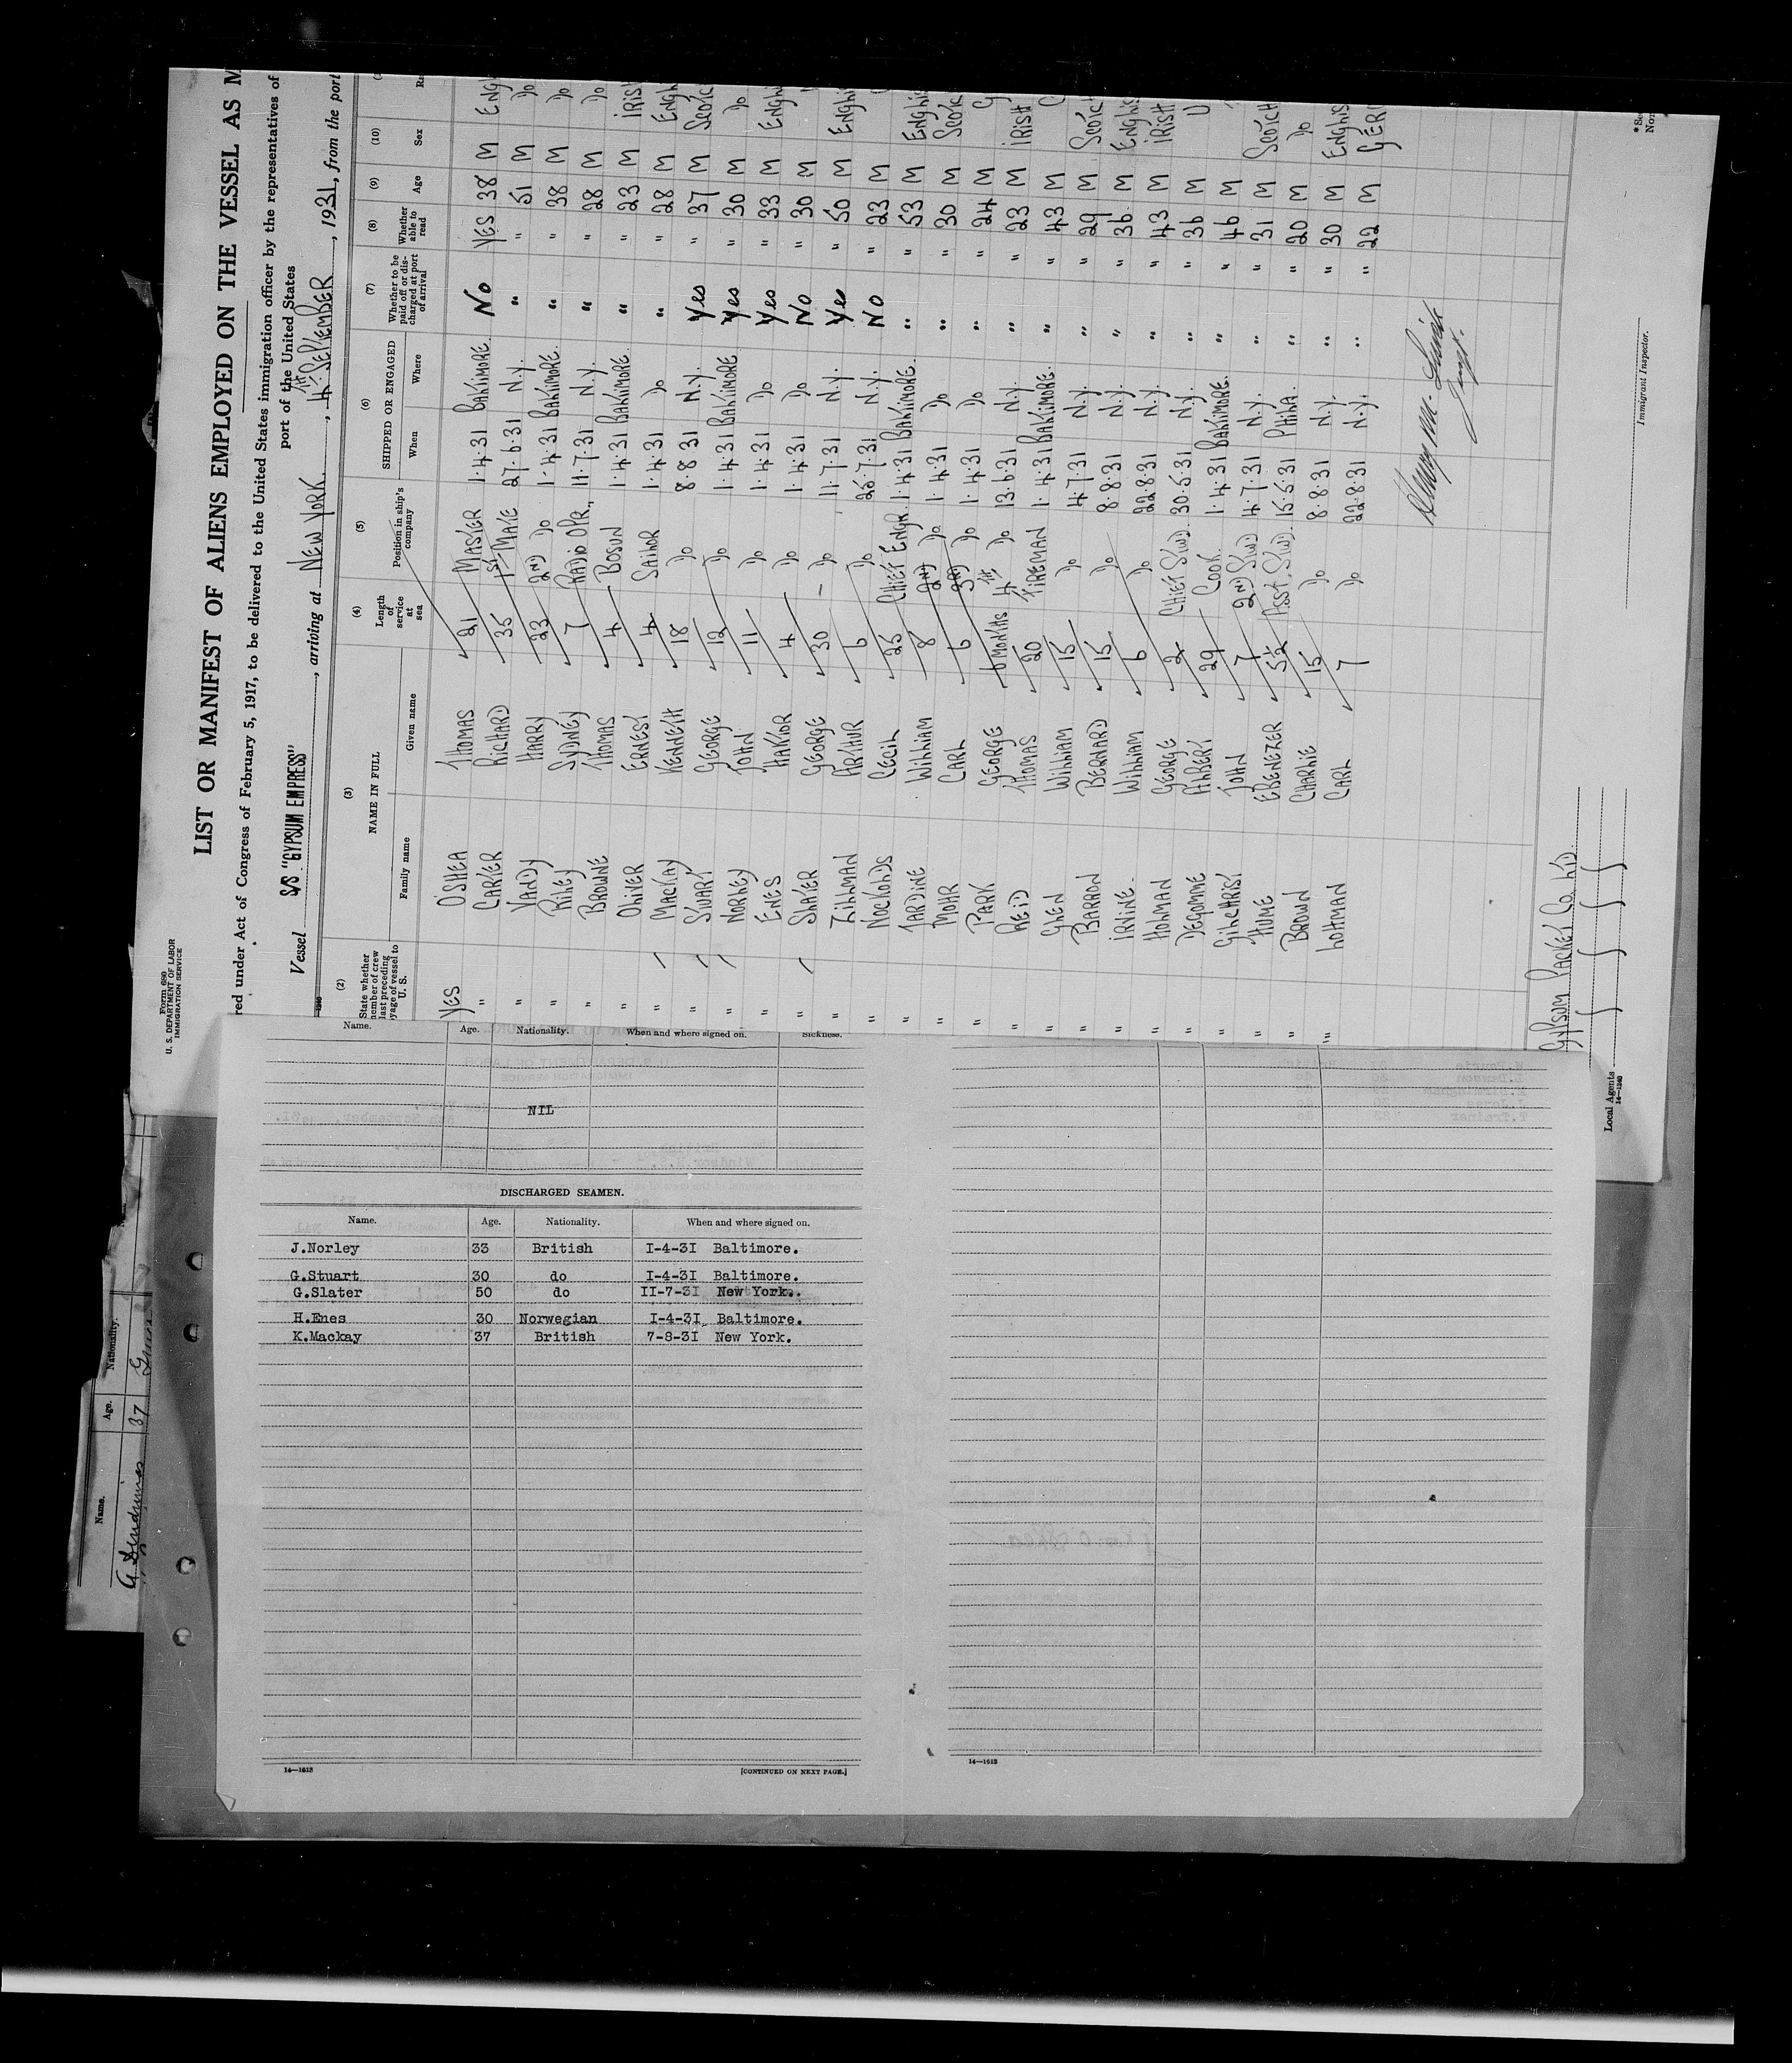 Form 680
U. S. DEPARTMENT OF LABOR
IMMIGRATION SERVICE
LIST OR MANIFEST OF ALIENS EMPLOYED ON THE VESSEL AS M
red under Act of Congress of February 5, 1917, to be delivered to the United States immigration officer by the representatives of
port of the United States
Vessel S/S "GYPSUM EMPRESS", arriving at NEW YORK, 4TH SEPTEMBER, 1931, from the port
(2) (3) (4) (5) (6) (7) (8) (9) (10)
State whether member of crew last preceding voyage of vessel to U. S. NAME IN FULL Family name Given name Length of service at sea Position in ship's company SHIPPED OR ENGAGED When Where Whether to be paid off or discharged at port of arrival Whether able to read Age Sex
YES OSHEA THOMAS 21 MASTER 1·4·31 BALTIMORE. No YES 38 M ENG
" CARTER RICHARD 35 1ST MATE 27·6·31 N.Y. " " 51 M DO
" VANDY HARRY 23 2ND DO 1·4·31 BALTIMORE. " " 38 M DO
" RILEY SYDNEY 7 RADIO OPR., 11·7·31 N.Y. " " 28 M DO
" BROWNE THOMAS 4 BOSUN 1·4·31 BALTIMORE. " " 23 M IRISH
" OLIVER ERNEST 4 SAILOR 1·4·31 DO " " 28 M ENGLI
" MACKAY KENNETH 18 DO 8·8·31 N.Y. Yes " 37 M SCOTC
" STUART GEORGE 12 DO 1·4·31 BALTIMORE Yes " 30 M DO
" NORLEY JOHN 11 DO 1·4·31 DO Yes " 33 M ENGLI
" ENES HAKTOR 4 DO 1·4·31 DO No " 30 M
" SLATER GEORGE 30 DO 11·7·31 N.Y. Yes " 50 M ENGLI
" ZILLMAN ARTHUR 6 DO 25·7·31 N.Y. No " 23 M
" NOCKOLDS CECIL 25 CHIEF ENGR. 1·4·31 BALTIMORE. " " 53 M ENGLIS
" JARDINE WILLIAM 8 2ND DO 1·4·31 DO " " 30 M SCOTC
" MOHR CARL 6 3RD DO 1·4·31 DO " " 24 M G
" PARK GEORGE 6 MONTHS 4TH DO 13·6·31 N.Y. " " 23 M IRISH
" REID THOMAS 20 FIREMAN 1·4·31 BALTIMORE. " " 43 M
" GLEN WILLIAM 15 DO 4·7·31 N.Y. " " 29 M SCOTCH
" BARRON BERNARD 15 DO 8·8·31 N.Y. " " 36 M ENGLIS
" IRVINE. WILLIAM 6 DO 22·8·31 N.Y. " " 43 M IRISH
" HOLMAN GEORGE 2 CHIEF STWD. 30·5·31 N.Y. " " 36 M U
" DEGOMME ALBERT 29 COOK. 1·4·31 BALTIMORE. " " 46 M
" GILCHRIST JOHN 7 2ND STWD 4·7·31 N.Y " " 31 M SCOTCH
" HUME EBENEZER 5½ ASST. STWD. 15·5·31 PHILA. " " 20 M DO
" BROWN CHARLIE 15 DO 8·8·31 N.Y. " " 30 M ENGLIS
" LOHMAN CARL 7 DO 22·8·31 N.Y. " " 22 M GER
GYPSUM PACKET Co. LTD.
Local Agents
14—1240
Immigrant Inspector.
Name. Age. Nationality. When and where signed on. Sickness.
NIL
DISCHARGED SEAMEN.
Name. Age. Nationality. When and where signed on.
J.Norley 33 British I-4-3I Baltimore.
G.Stuart 30 do I-4-3I Baltimore.
G.Slater 50 do II-7-3I New York.
H.Enes 30 Norwegian I-4-3I Baltimore.
K.Mackay 37 British 7-8-3I New York.
14—1613
[CONTINUED ON NEXT PAGE.]
14—1613
Name. Age. Nationality.
37